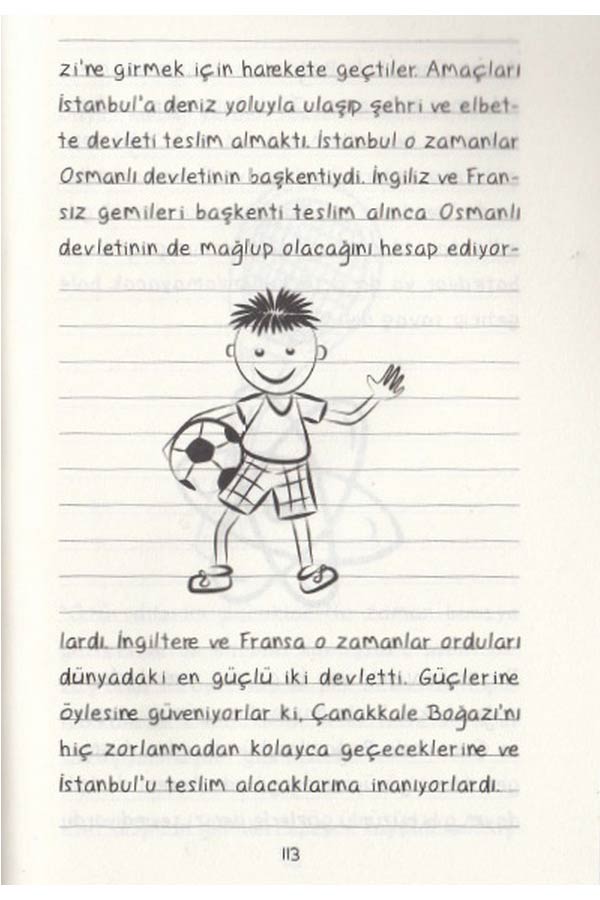 zi'ne girmek için harekete geçtiler. Amaçları
İstanbul'a deniz yoluyla ulaşıp şehri ve elbet-
te devleti teslim almaktı. İstanbul o zamanlar
Osmanlı devletinin başkentiydi. İngiliz ve Fran-
sız gemileri başkenti teslim alınca Osmanlı
devletinin de mağlup olacağını hesap ediyor-
lardı. İngiltere ve Fransa o zamanlar orduları
dünyadaki en güçlü iki devletti. Güçlerine
öylesine güveniyorlar ki, Çanakkale Boğazı'nı
hiç zorlanmadan kolayca geçeceklerine ve
İstanbul'u teslim alacaklarına inanıyorlardı.
113